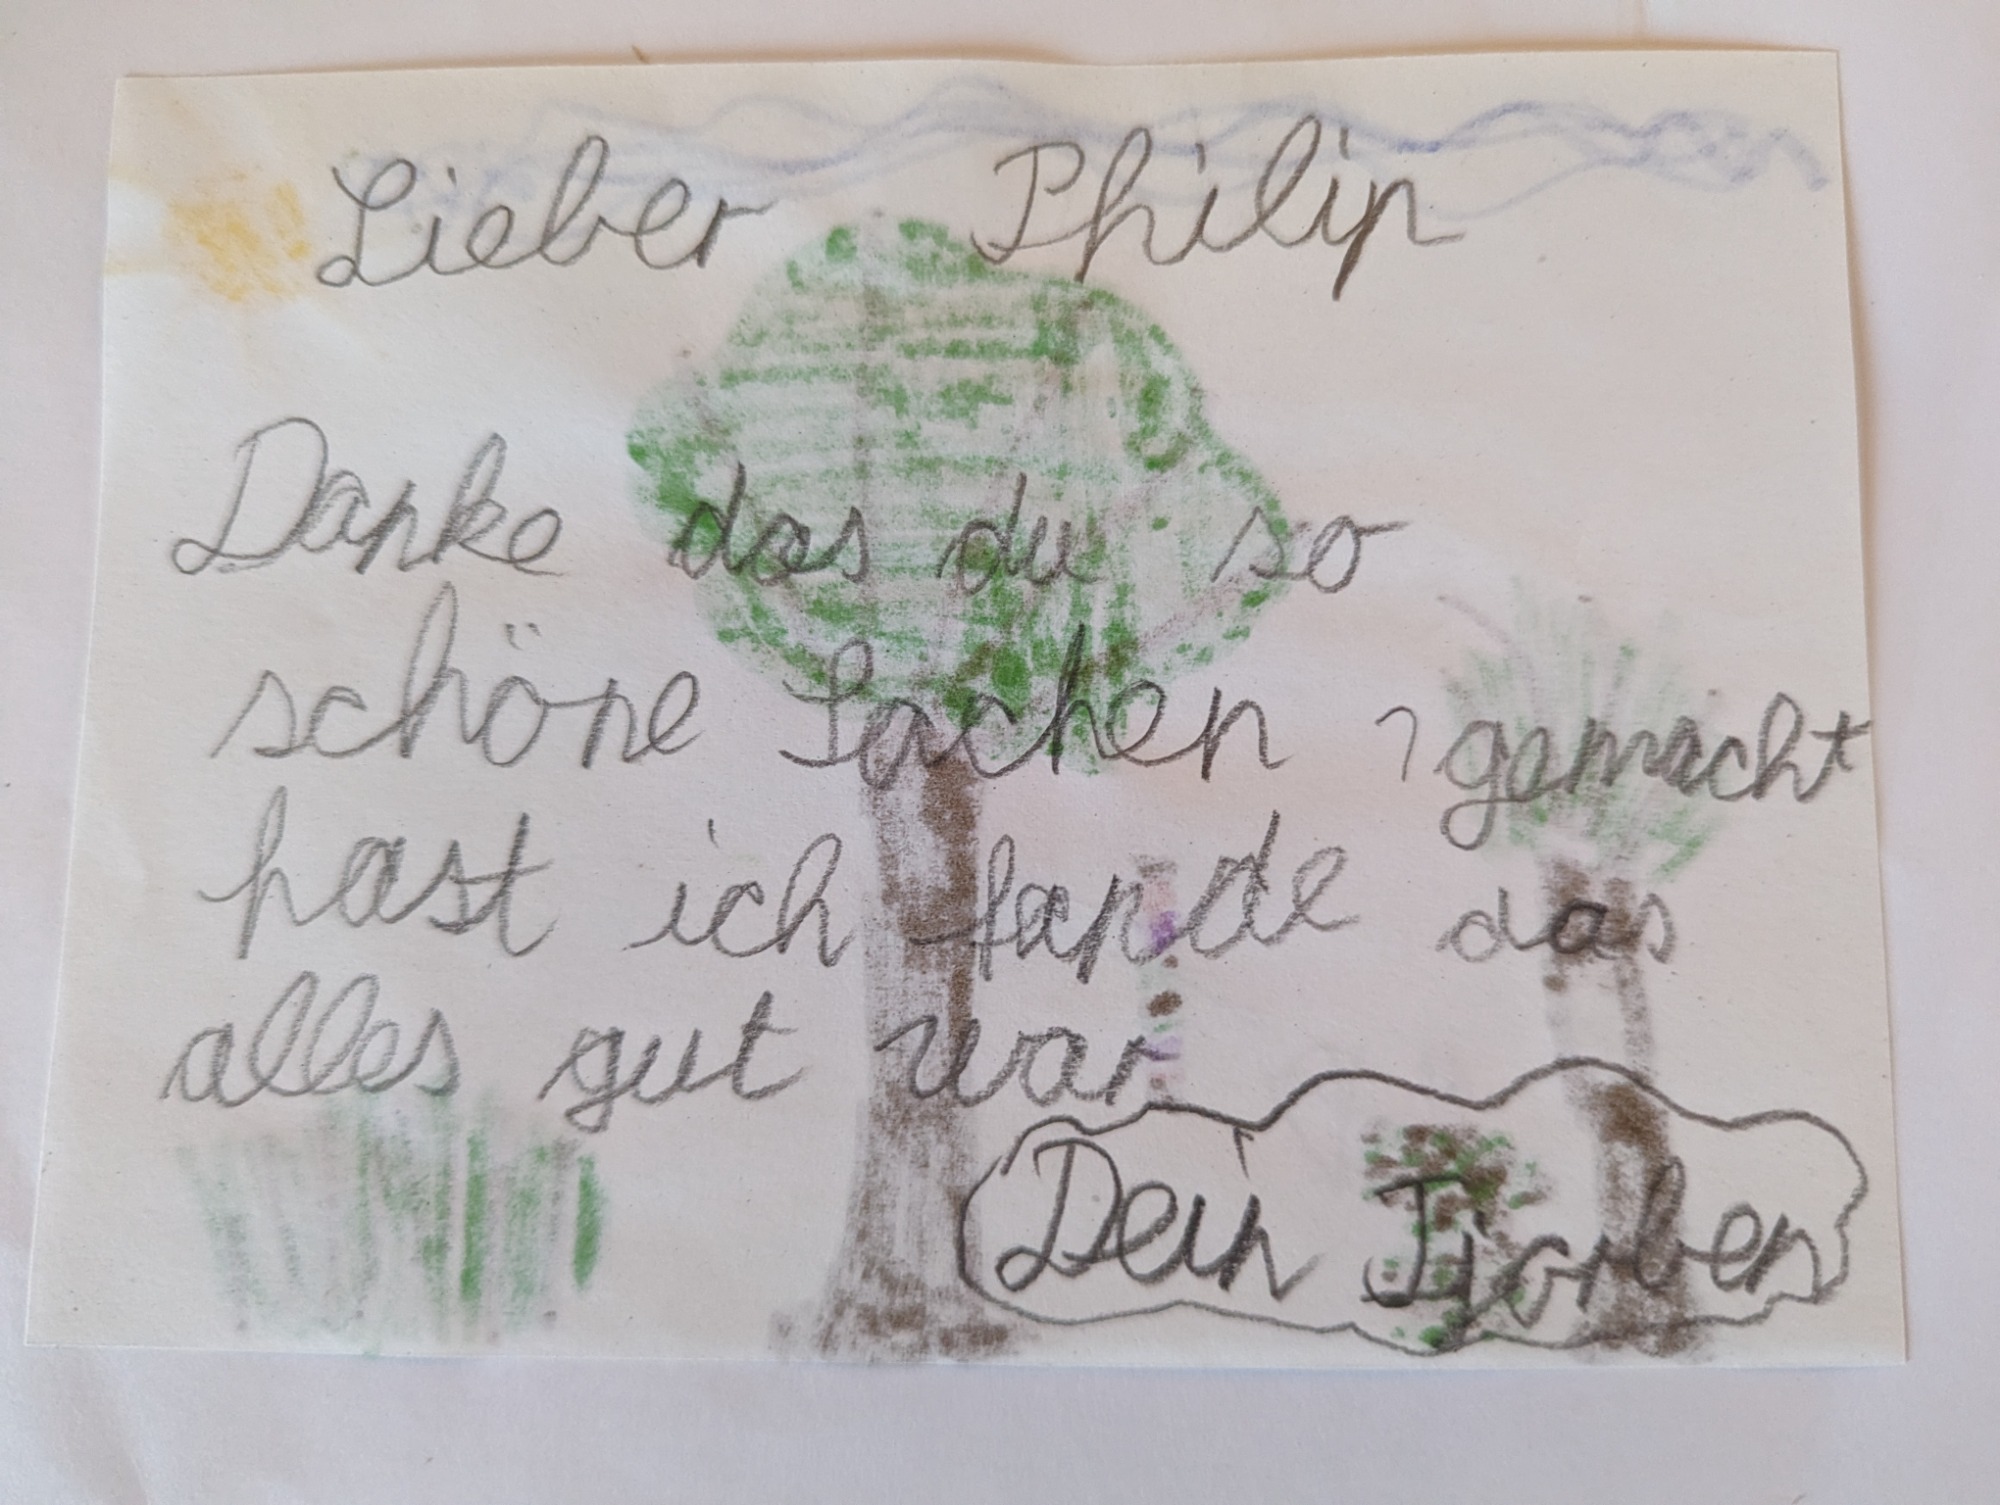 Lieber Philip
Danke das du so
schöne Sachen gemacht
hast ich fande das
alles gut war
Dein Tjorben